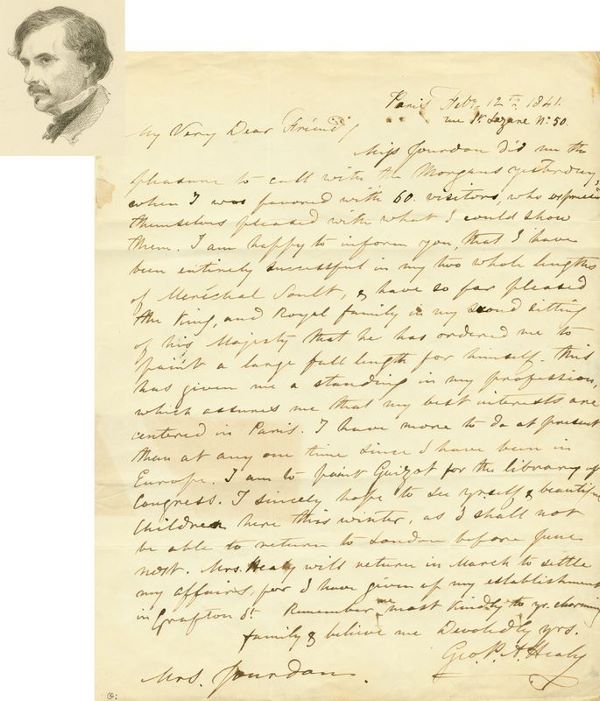 Paris Feb. 12th 1841.
rue St. Lazare No. 50.
My Very Dear Friend,
Miss Jourdan did me the
pleasure to call with the Morgans yesterday,
when I was favored with 60. visitors, who expressed
themselves pleased with what I could show
them. I am happy to inform you, that I have
been entirely successful in my two whole lengths
of Maréchal Soult, & have so far pleased
the King, and Royal family in my second sitting
of his Majesty that he has ordered me to
paint a large full length for himself. This
has given me a standing in my profession,
which assures me that my best interests are
centered in Paris. I have more to do at present
than at any one time since I have been in
Europe. I am to paint Guizot for the library of
Congress. I sincely hope to see yrself & beautiful
Children here this winter, as I shall not
be able to return to London before June
next. Mrs. Healy will return in March to settle
my affairs, for I have given up my establishment
in Grafton St. Remember me most kindly to yr. charming
family & believe me Devotedly yrs.
Geo. P. A. Healy
Mrs. Jourdan.